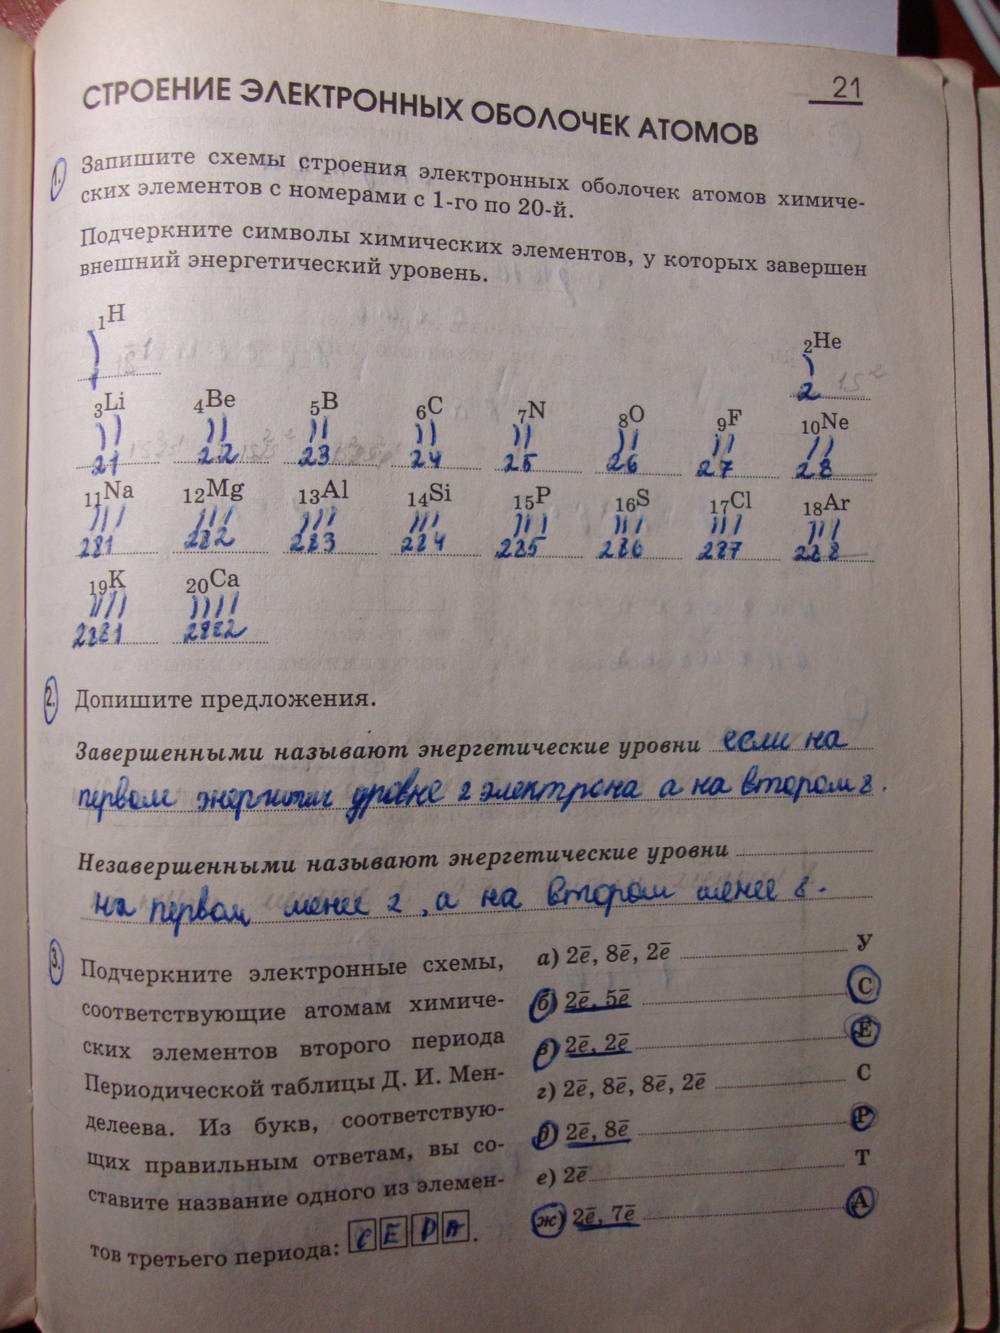 21
СТРОЕНИЕ ЭЛЕКТРОННЫХ ОБОЛОЧЕК АТОМОВ
1. Запишите схемы строения электронных оболочек атомов химиче-
ских элементов с номерами с 1-го по 20-й.
Подчеркните символы химических элементов, у которых завершен
внешний энергетический уровень.
1H 2He
1 2
3Li 4Be 5B 6C 7N 8O 9F 10Ne
21 22 23 24 25 26 27 28
11Na 12Mg 13Al 14Si 15P 16S 17Cl 18Ar
281 282 283 284 285 286 287 288
19K 20Ca
2881 2882
2. Допишите предложения.
Завершенными называют энергетические уровни если на
первом уровне 2 электрона а на втором 8.
Незавершенными называют энергетические уровни
на первом менее 2, а на втором менее 8.
3. Подчеркните электронные схемы,
соответствующие атомам химиче-
ских элементов второго периода
Периодической таблицы Д. И. Мен-
делеева. Из букв, соответствую-
щих правильным ответам, вы со-
ставите название одного из элемен-
тов третьего периода: СЕРА.
а) 2ē, 8ē, 2ē У
б) 2ē, 5ē С
в) 2ē, 2ē Е
г) 2ē, 8ē, 8ē, 2ē С
д) 2ē, 8ē Р
е) 2ē Т
ж) 2ē, 7ē А